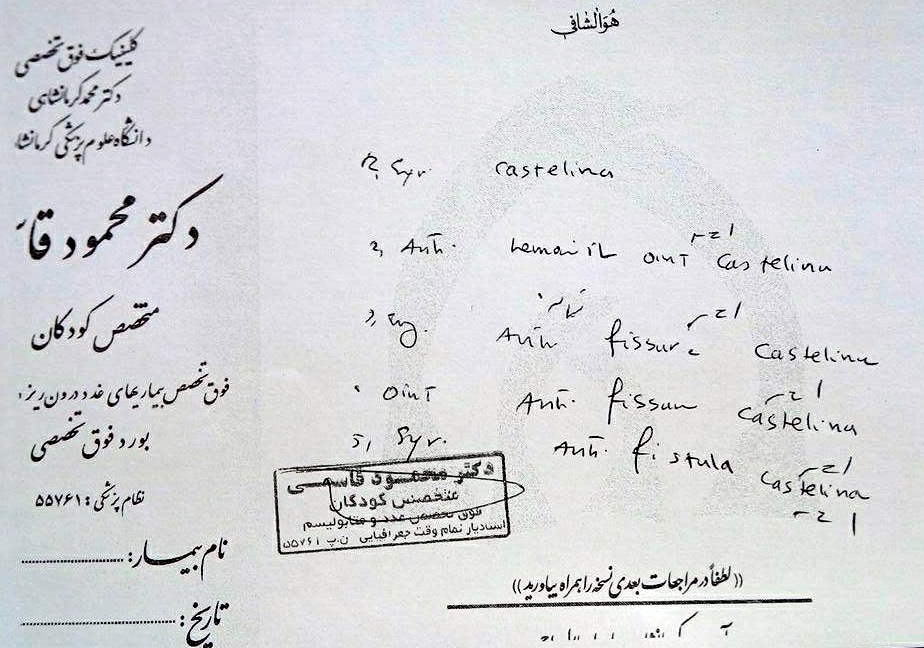 هُوَالشافی
کلینیک فوق تخصصی
دکتر محمد کرمانشاهی
دانشگاه علوم پزشکی کرمانشا
دکتر محمود قا
متخصص کودکان
فوق تخصص بیماریهای غدد درون ریز
بورد فوق تخصصی
نظام پزشکی: ۵۵۷۶۱
نام بیمار:
تاریخ:
Syr. castelina
Anti. hemoroil oint castelina
Anti fissure castelina
oint Anti. fissur castelina
5, Syr. Anti. fistula castelina
دکتر محمود قاسمی
متخصص کودکان
فوق تخصص غدد و متابولیسم
استادیار تمام وقت جغرافیایی ن.پ ۵۵۷۶۱
((لطفاً در مراجعات بعدی نسخه را همراه بیاورید))